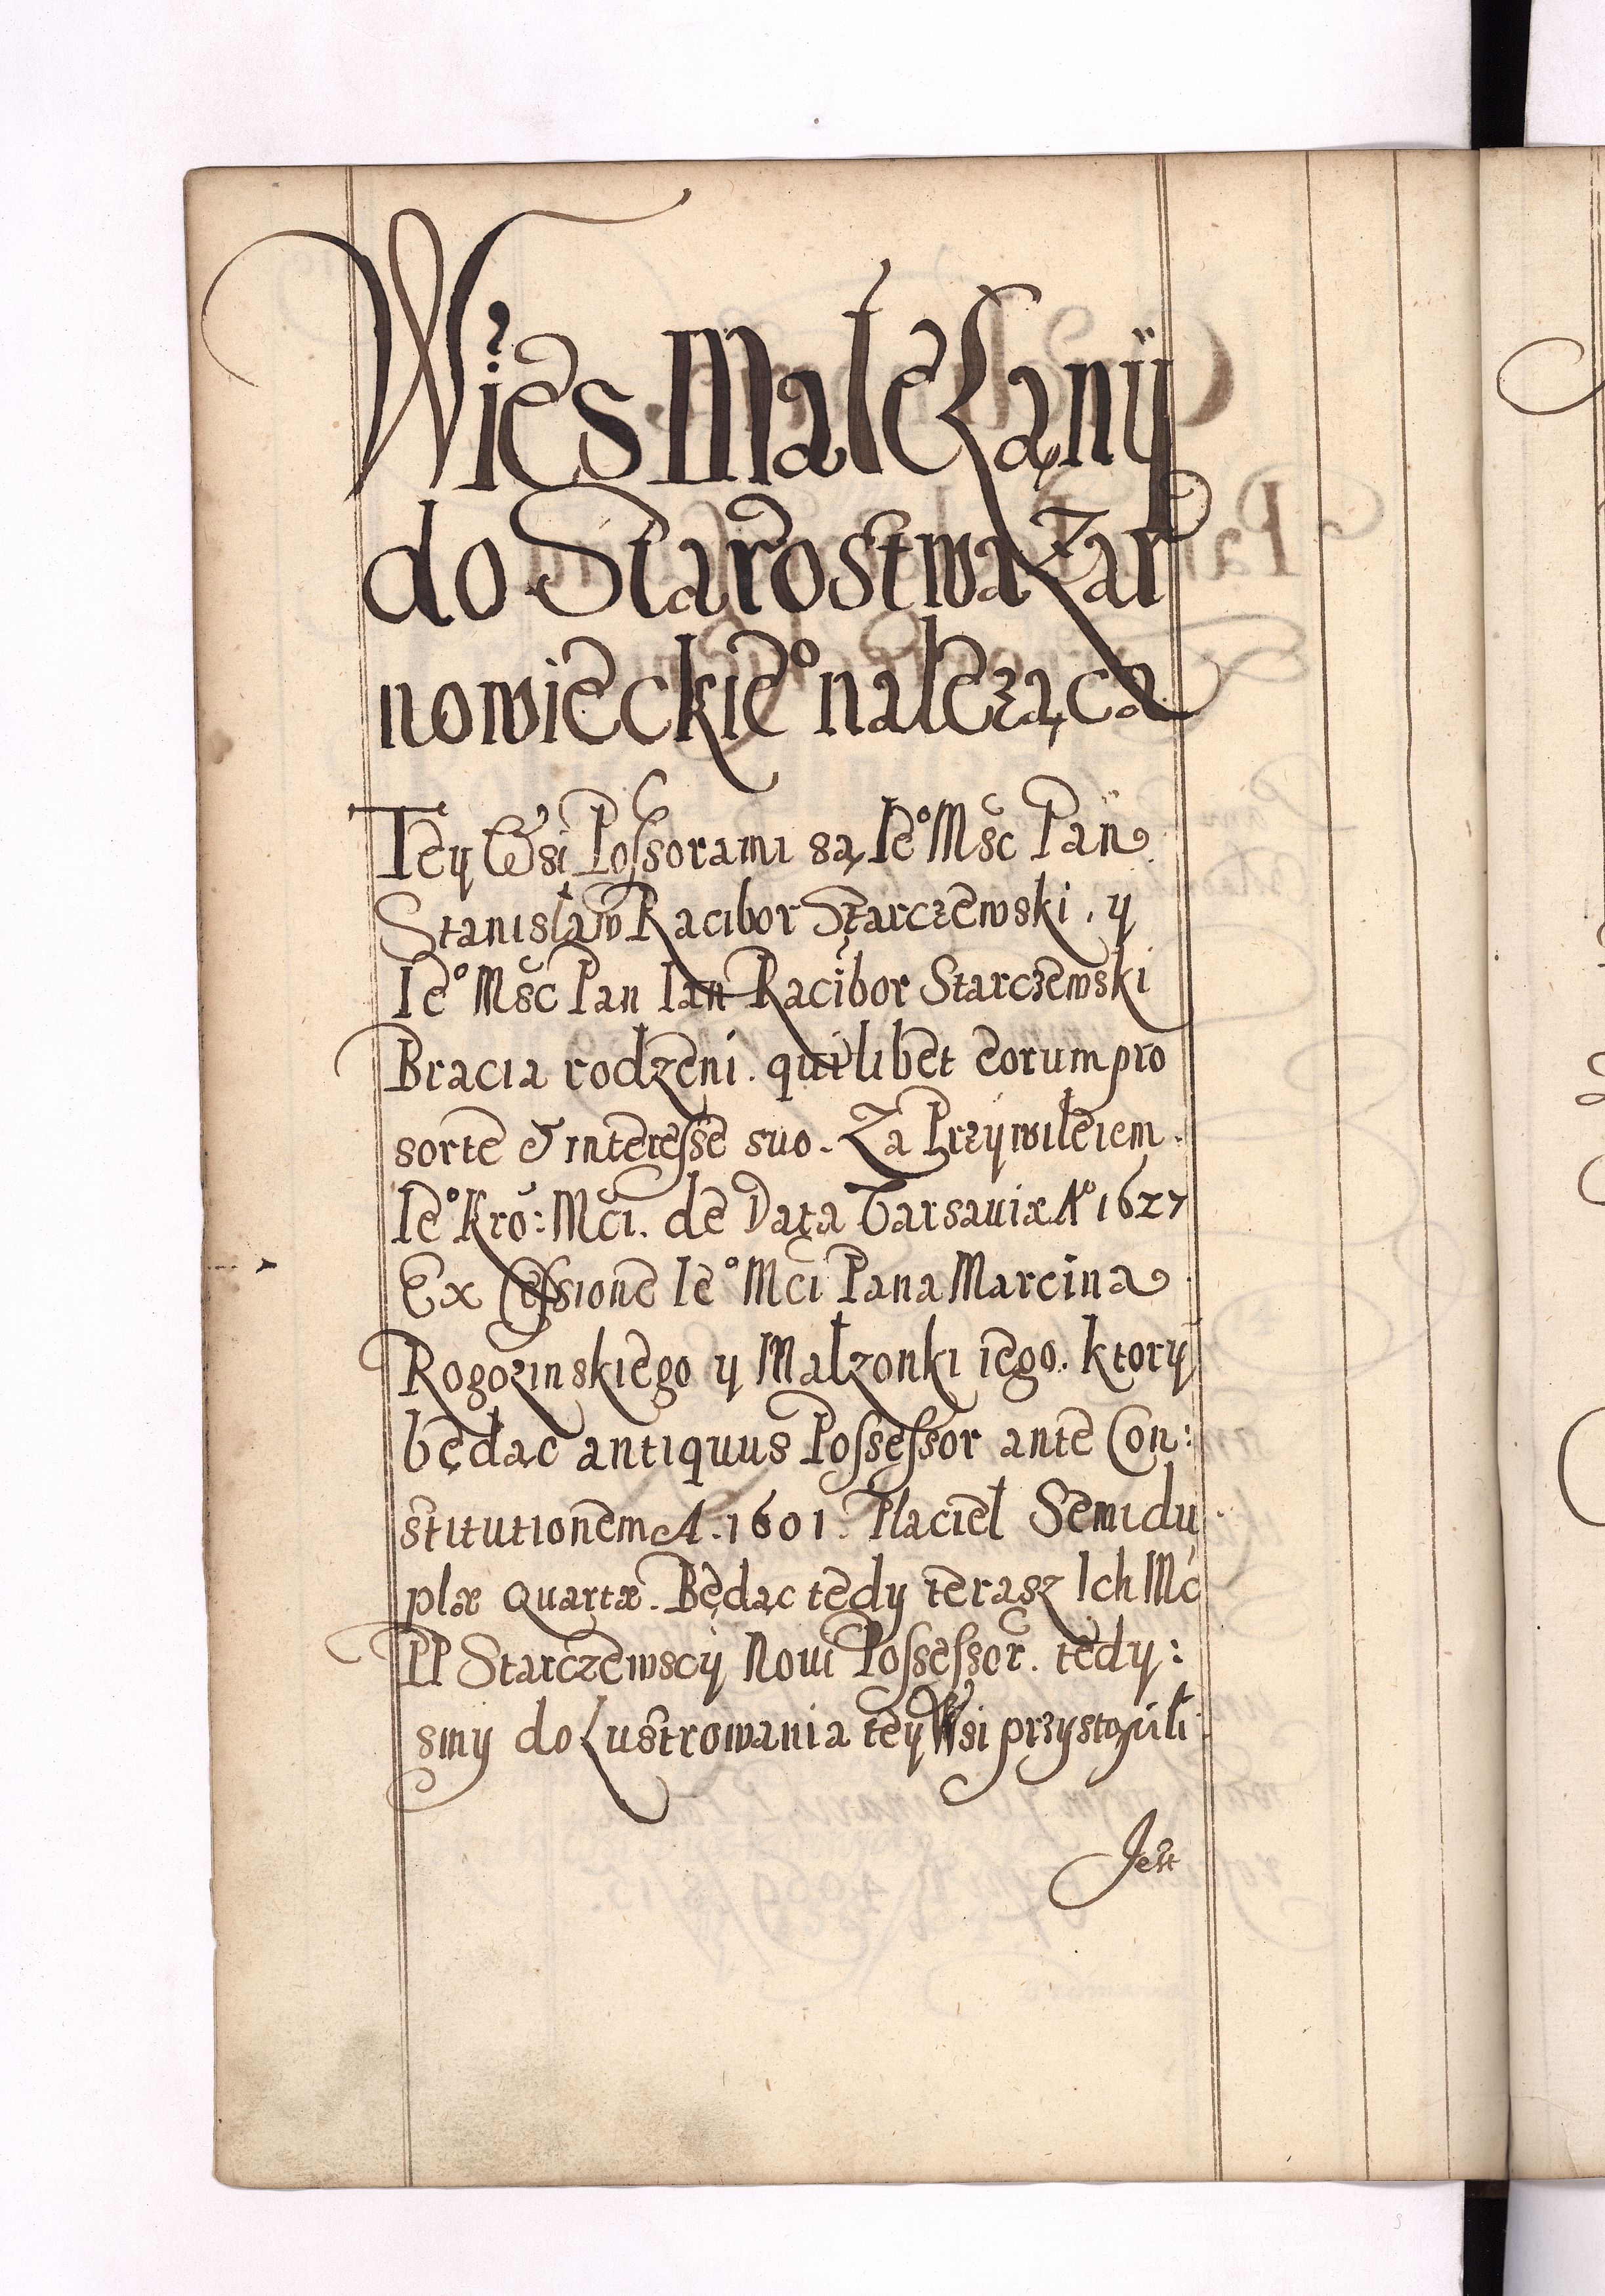 Wies Małe Rąnÿ
do Starostwa Zar
nowieckie° nalezącа
Teÿ Wsi Possorami są Ie° Msc Pan
Stanisław Racibor Starczewski. y
Ie° Msc Pan Ian Racibor Starczewski
Bracia rodzeni. quilibet eorum pro
sorte & interesse suo. Za Przÿwileiem.
Ie° Kro: Mci. de Data Varsaviæ A° 1627
Ex Cessione Ie° Mci Pana Marcina
Rogozinskiego y Małzonki iego. ktorÿ
będąc antiquus Possessor ante Con:
stitutionem A. 1601. Płacieł Semidu
plæ quartæ. Będąc tedÿ terasz Ich Mć
PP Starczewscÿ Noui Possessor. tedÿ:
smÿ do Lustrowania teÿ Wsi przÿstąpili.
Jest